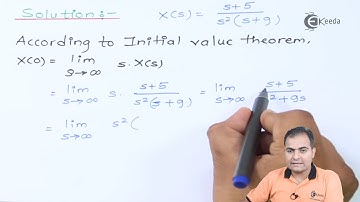 Solution:- X(s) = s+5 / s²(s+9)
Ekeeda
According to Initial value theorem,
X(0) = lim s→∞ s. X(s)
= lim s→∞ s. s+5 / s²(s+9) = lim s→∞ s+5 / s²+9s
= lim s→∞ s²(